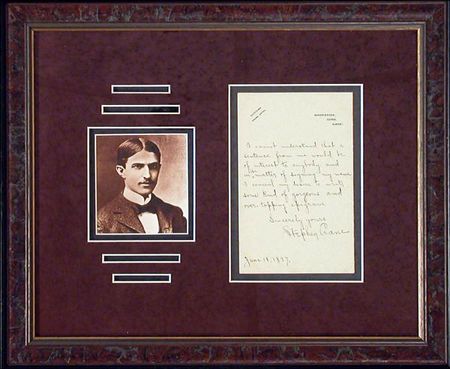 I cannot understand that a
sentence from me would be
of interest to anybody and
as matter of signing my name
I conceal my desire to write
some kind of gorgeous and
over-topping
Sincerely yours
Stephen Crane
June 18, 1897.